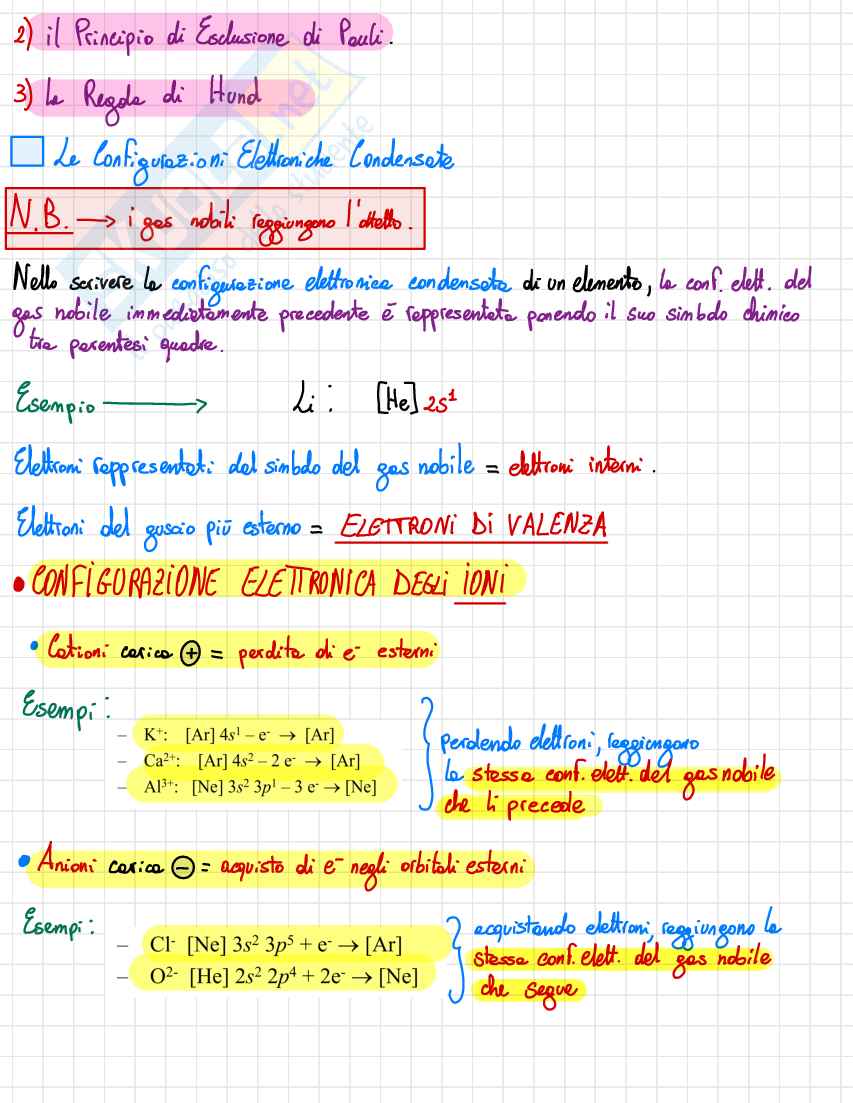 2) il Principio di Esclusione di Pauli.
3) la Regola di Hund
Le Configurazioni Elettroniche Condensate
N.B. → i gas nobili raggiungono l'ottetto.
Nello scrivere la configurazione elettronica condensata di un elemento, la conf. elett. del
gas nobile immediatamente precedente è rappresentata ponendo il suo simbolo chimico
tra parentesi quadre.
Esempio → Li: [He] 2s¹
Elettroni rappresentati dal simbolo del gas nobile = elettroni interni.
Elettroni del guscio più esterno = ELETTRONI DI VALENZA
• CONFIGURAZIONE ELETTRONICA DEGLI IONI
• Cationi carica ⊕ = perdita di e⁻ esterni
Esempi:
– K⁺: [Ar] 4s¹ – e⁻ → [Ar]
– Ca²⁺: [Ar] 4s² – 2 e⁻ → [Ar]
– Al³⁺: [Ne] 3s² 3p¹ – 3 e⁻ → [Ne]
perdendo elettroni, raggiungono
la stessa conf. elett. del gas nobile
che li precede
• Anioni carica ⊖ = acquisto di e⁻ negli orbitali esterni
Esempi:
– Cl⁻ [Ne] 3s² 3p⁵ + e⁻ → [Ar]
– O²⁻ [He] 2s² 2p⁴ + 2e⁻ → [Ne]
acquistando elettroni, raggiungono la
stessa conf. elett. del gas nobile
che segue